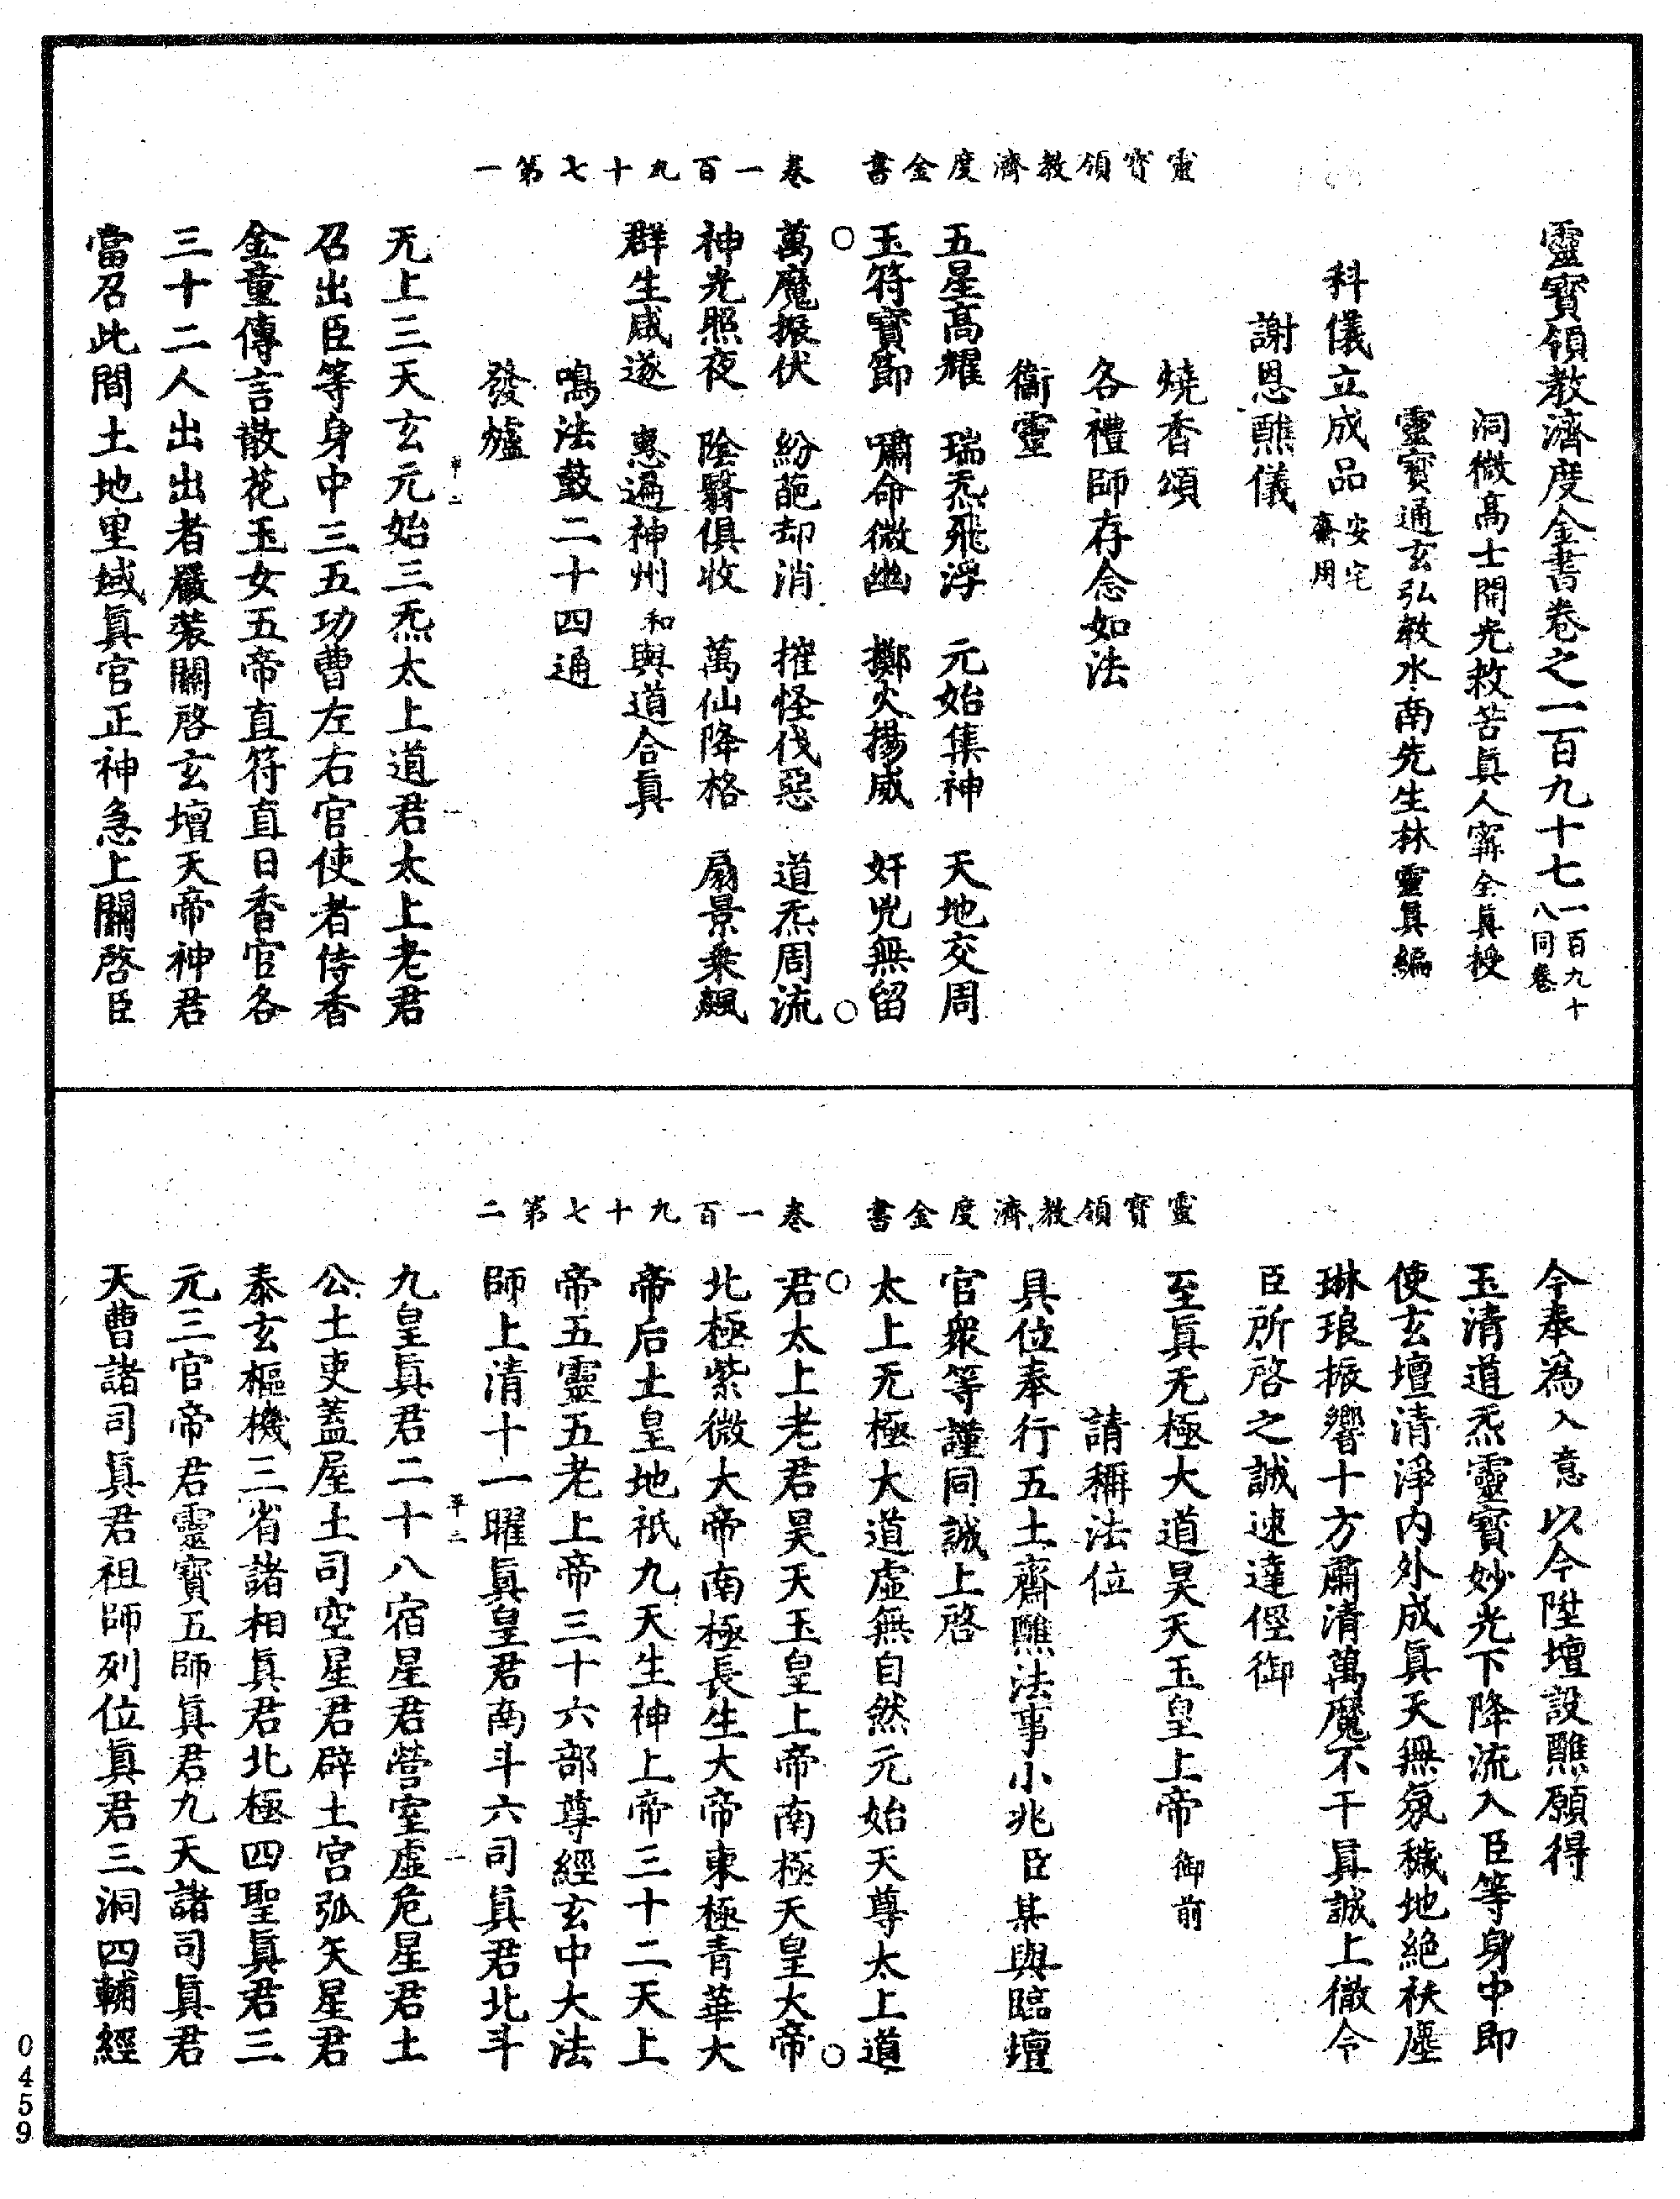 靈寳領教濟度金書　卷一百九十七第一
靈寳領教濟度金書卷之一百九十七一百九十八同卷
洞微高士開光救苦眞人甯全眞授
靈寳通玄弘教水南先生林靈眞編
科儀立成品安宅齋用
謝恩醮儀
燒香頌
各禮師存念如法
衞靈
五星高耀　瑞炁飛浮　元始集神　天地交周
玉符寳節　嘯命微幽　擲火揚威　奸兇無留
萬魔振伏　紛葩却消　摧怪伐惡　道炁周流
神光照夜　陰翳俱收　萬仙降格　扇景乗飈
群生咸遂　惠遍神州　和與道合眞
鳴法鼓二十四通
發爐
无上三天玄元始三炁太上道君太上老君
召出臣等身中三五功曹左右官使者侍香
金童傳言散花玉女五帝直符直日香官各
三十二人出出者嚴裝關啓玄壇天帝神君
當召此間土地里域眞官正神急上關啓臣
靈寳領教濟度金書　卷一百九十七第二
今奉為入意以今陞壇設醮願得
玉清道炁靈寳妙光下降流入臣等身中即
使玄壇清淨内外成眞天無氛穢地絶袄塵
琳琅振響十方肅清萬魔不干眞誠上徹令
臣所啓之誠速達徑御
至眞无極大道昊天玉皇上帝御前
請稱法位
具位奉行五土齋醮法事小兆臣某與臨壇
官衆等謹同誠上啓
太上无極大道虚無自然元始天尊太上道
君太上老君昊天玉皇上帝南極天皇大帝
北極紫微大帝南極長生大帝東極青華大
帝后土皇地祇九天生神上帝三十二天上
帝五靈五老上帝三十六部尊經玄中大法
師上清十一曜眞皇君南斗六司眞君北斗
九皇眞君二十八宿星君營室虚危星君土
公土吏蓋屋土司空星君辟土宫弧矢星君
泰玄樞機三省諸相眞君北極四聖眞君三
元三官帝君靈寳五師眞君九天諸司眞君
天曹諸司眞君祖師列位眞君三洞四輔經
0459